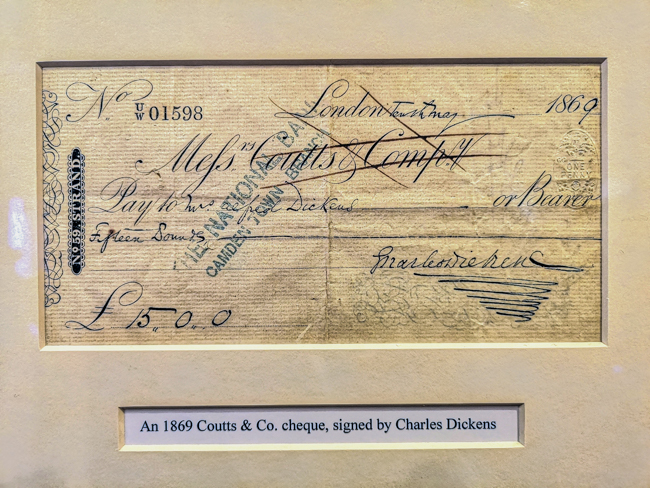 No U/W 01598
London, tenth May 1869
Messrs Coutts & Compy
Pay to Mrs Alfred Dickens or Bearer
Fifteen Pounds
Charles Dickens
£ 15,, 0,, 0
No 59, STRAND.
THE NATIONAL BANK
CAMDEN TOWN BRANCH
An 1869 Coutts & Co. cheque, signed by Charles Dickens